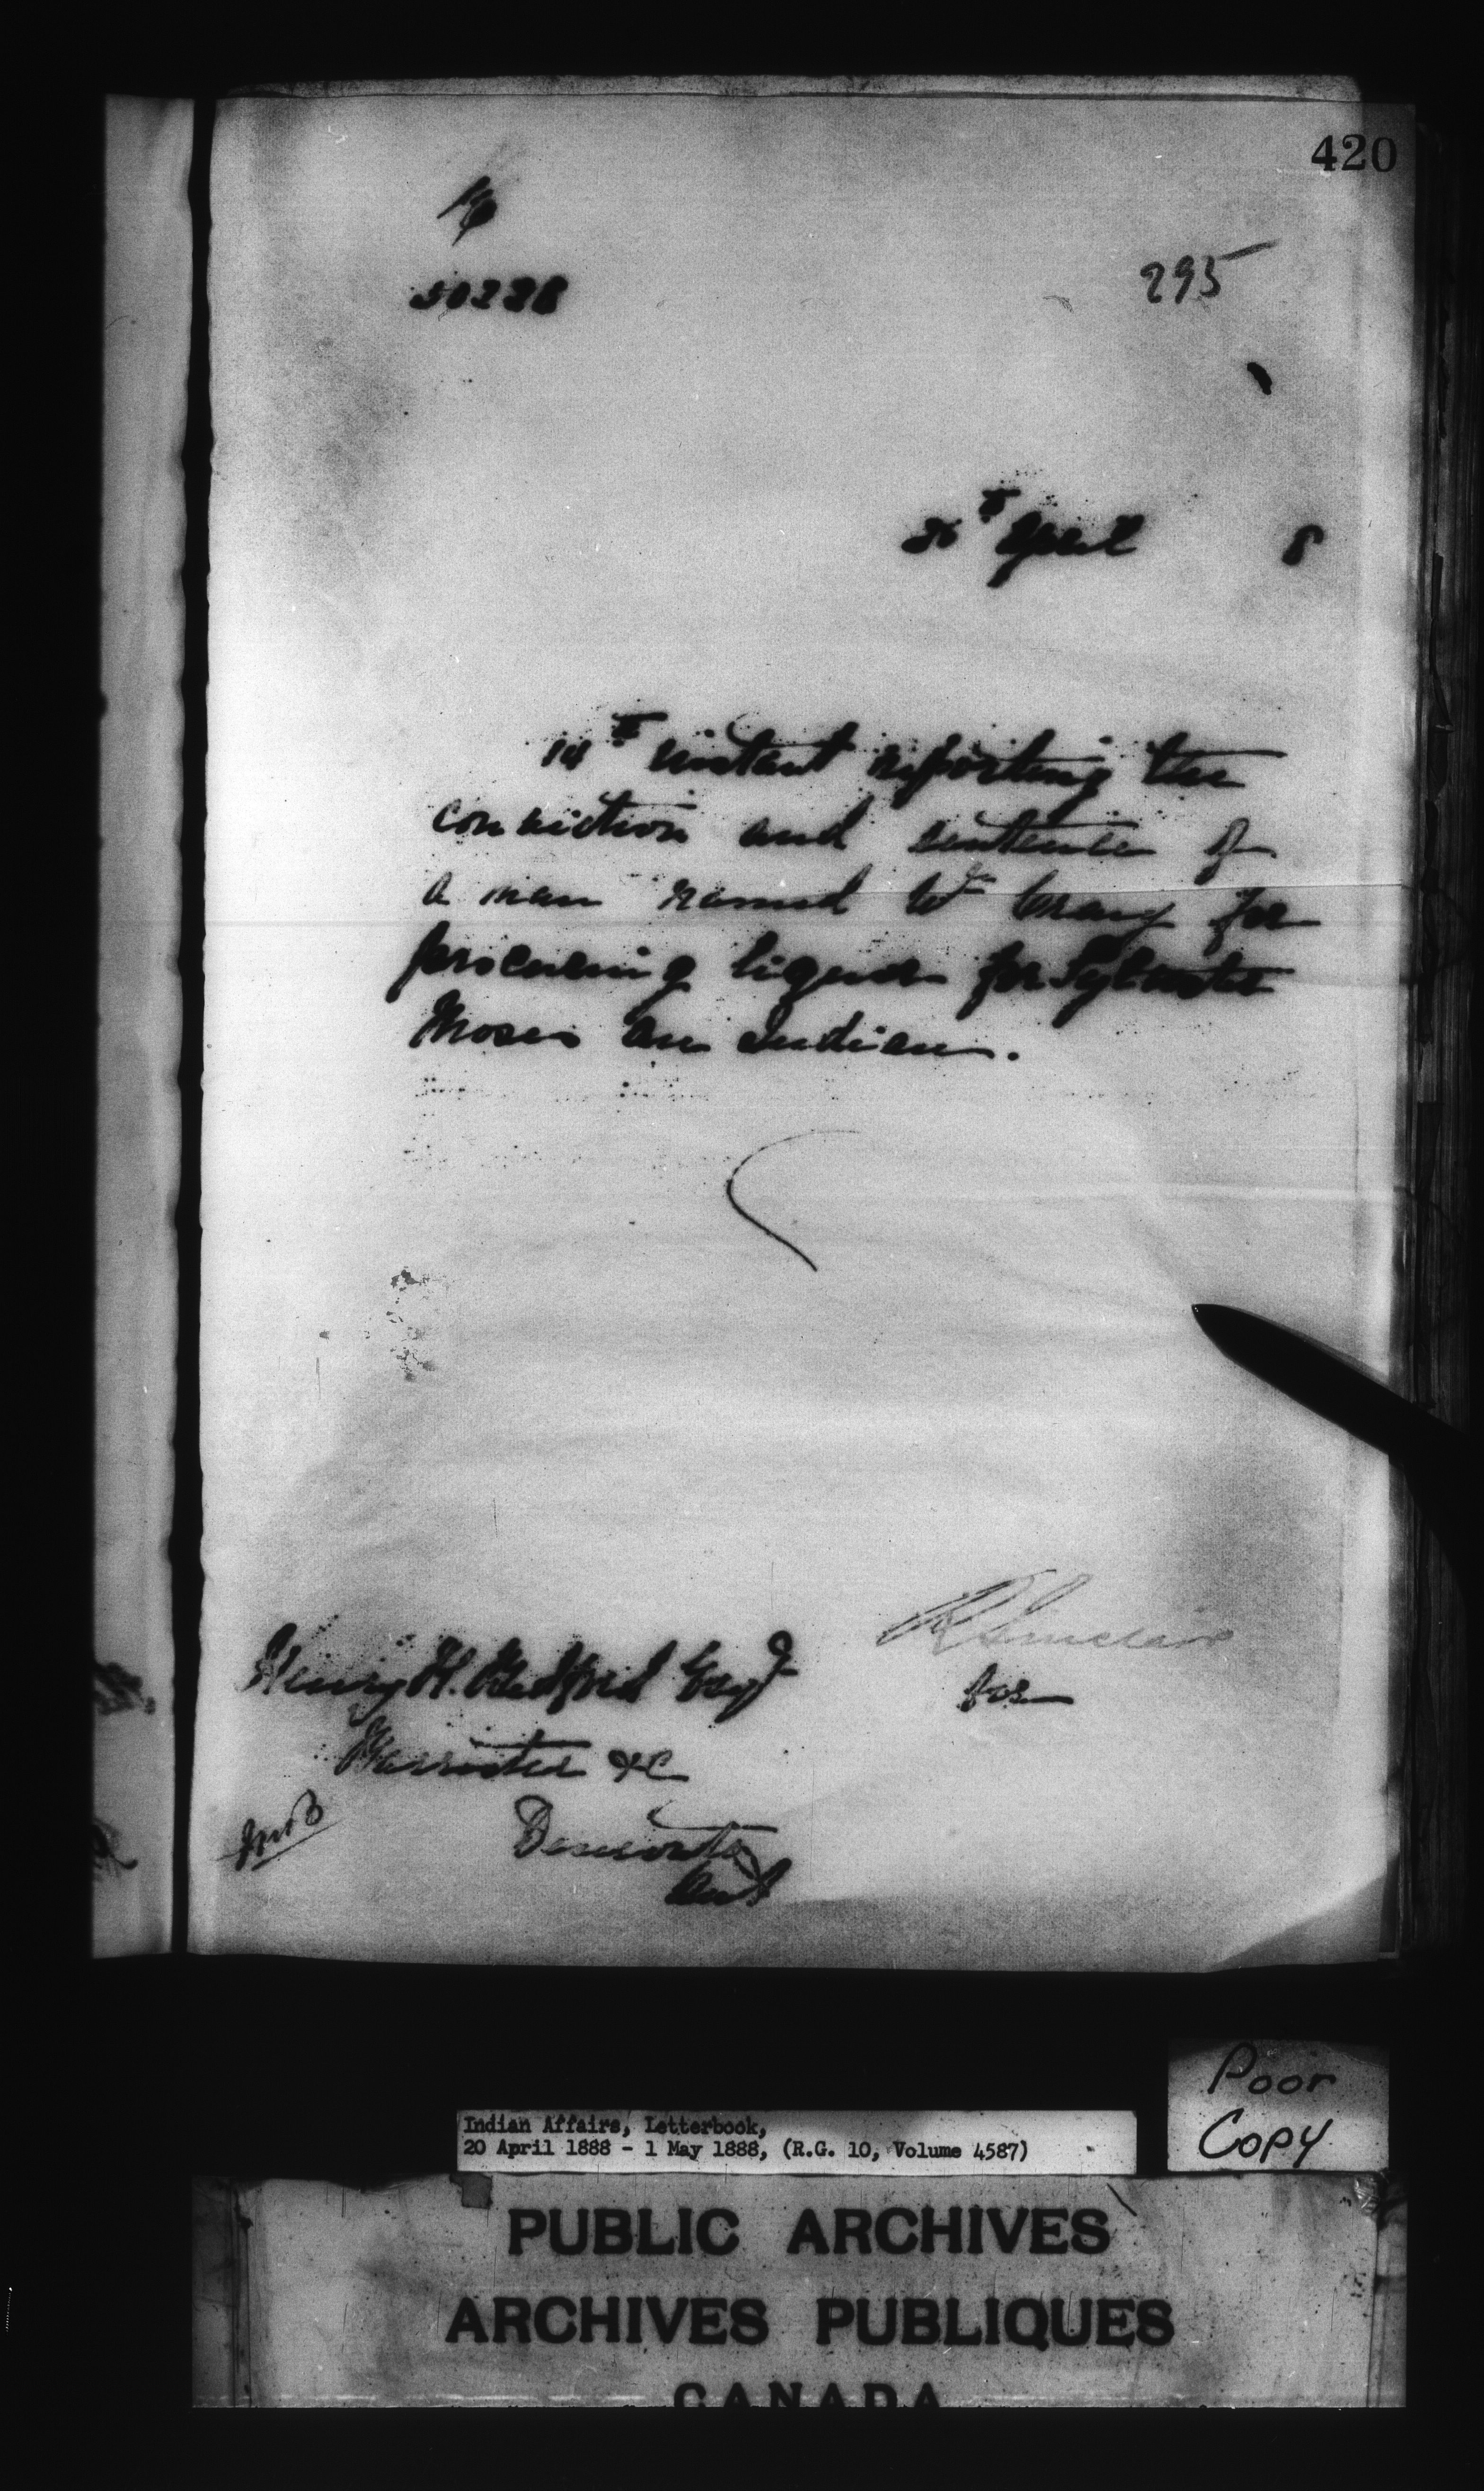 420
50228
295
26th April 8
14th instant reporting the
conviction and sentence of
a man named Wm Craig for
procuring liquor for Sylvester
Moses an Indian.
R Sinclair
for
Henry H. Bedford Esqr
Barrister &c
Deseronto
Ont
Poor
Copy
Indian Affairs, Letterbook,
20 April 1888 - 1 May 1888, (R.G. 10, Volume 4587)
PUBLIC ARCHIVES
ARCHIVES PUBLIQUES
CANADA